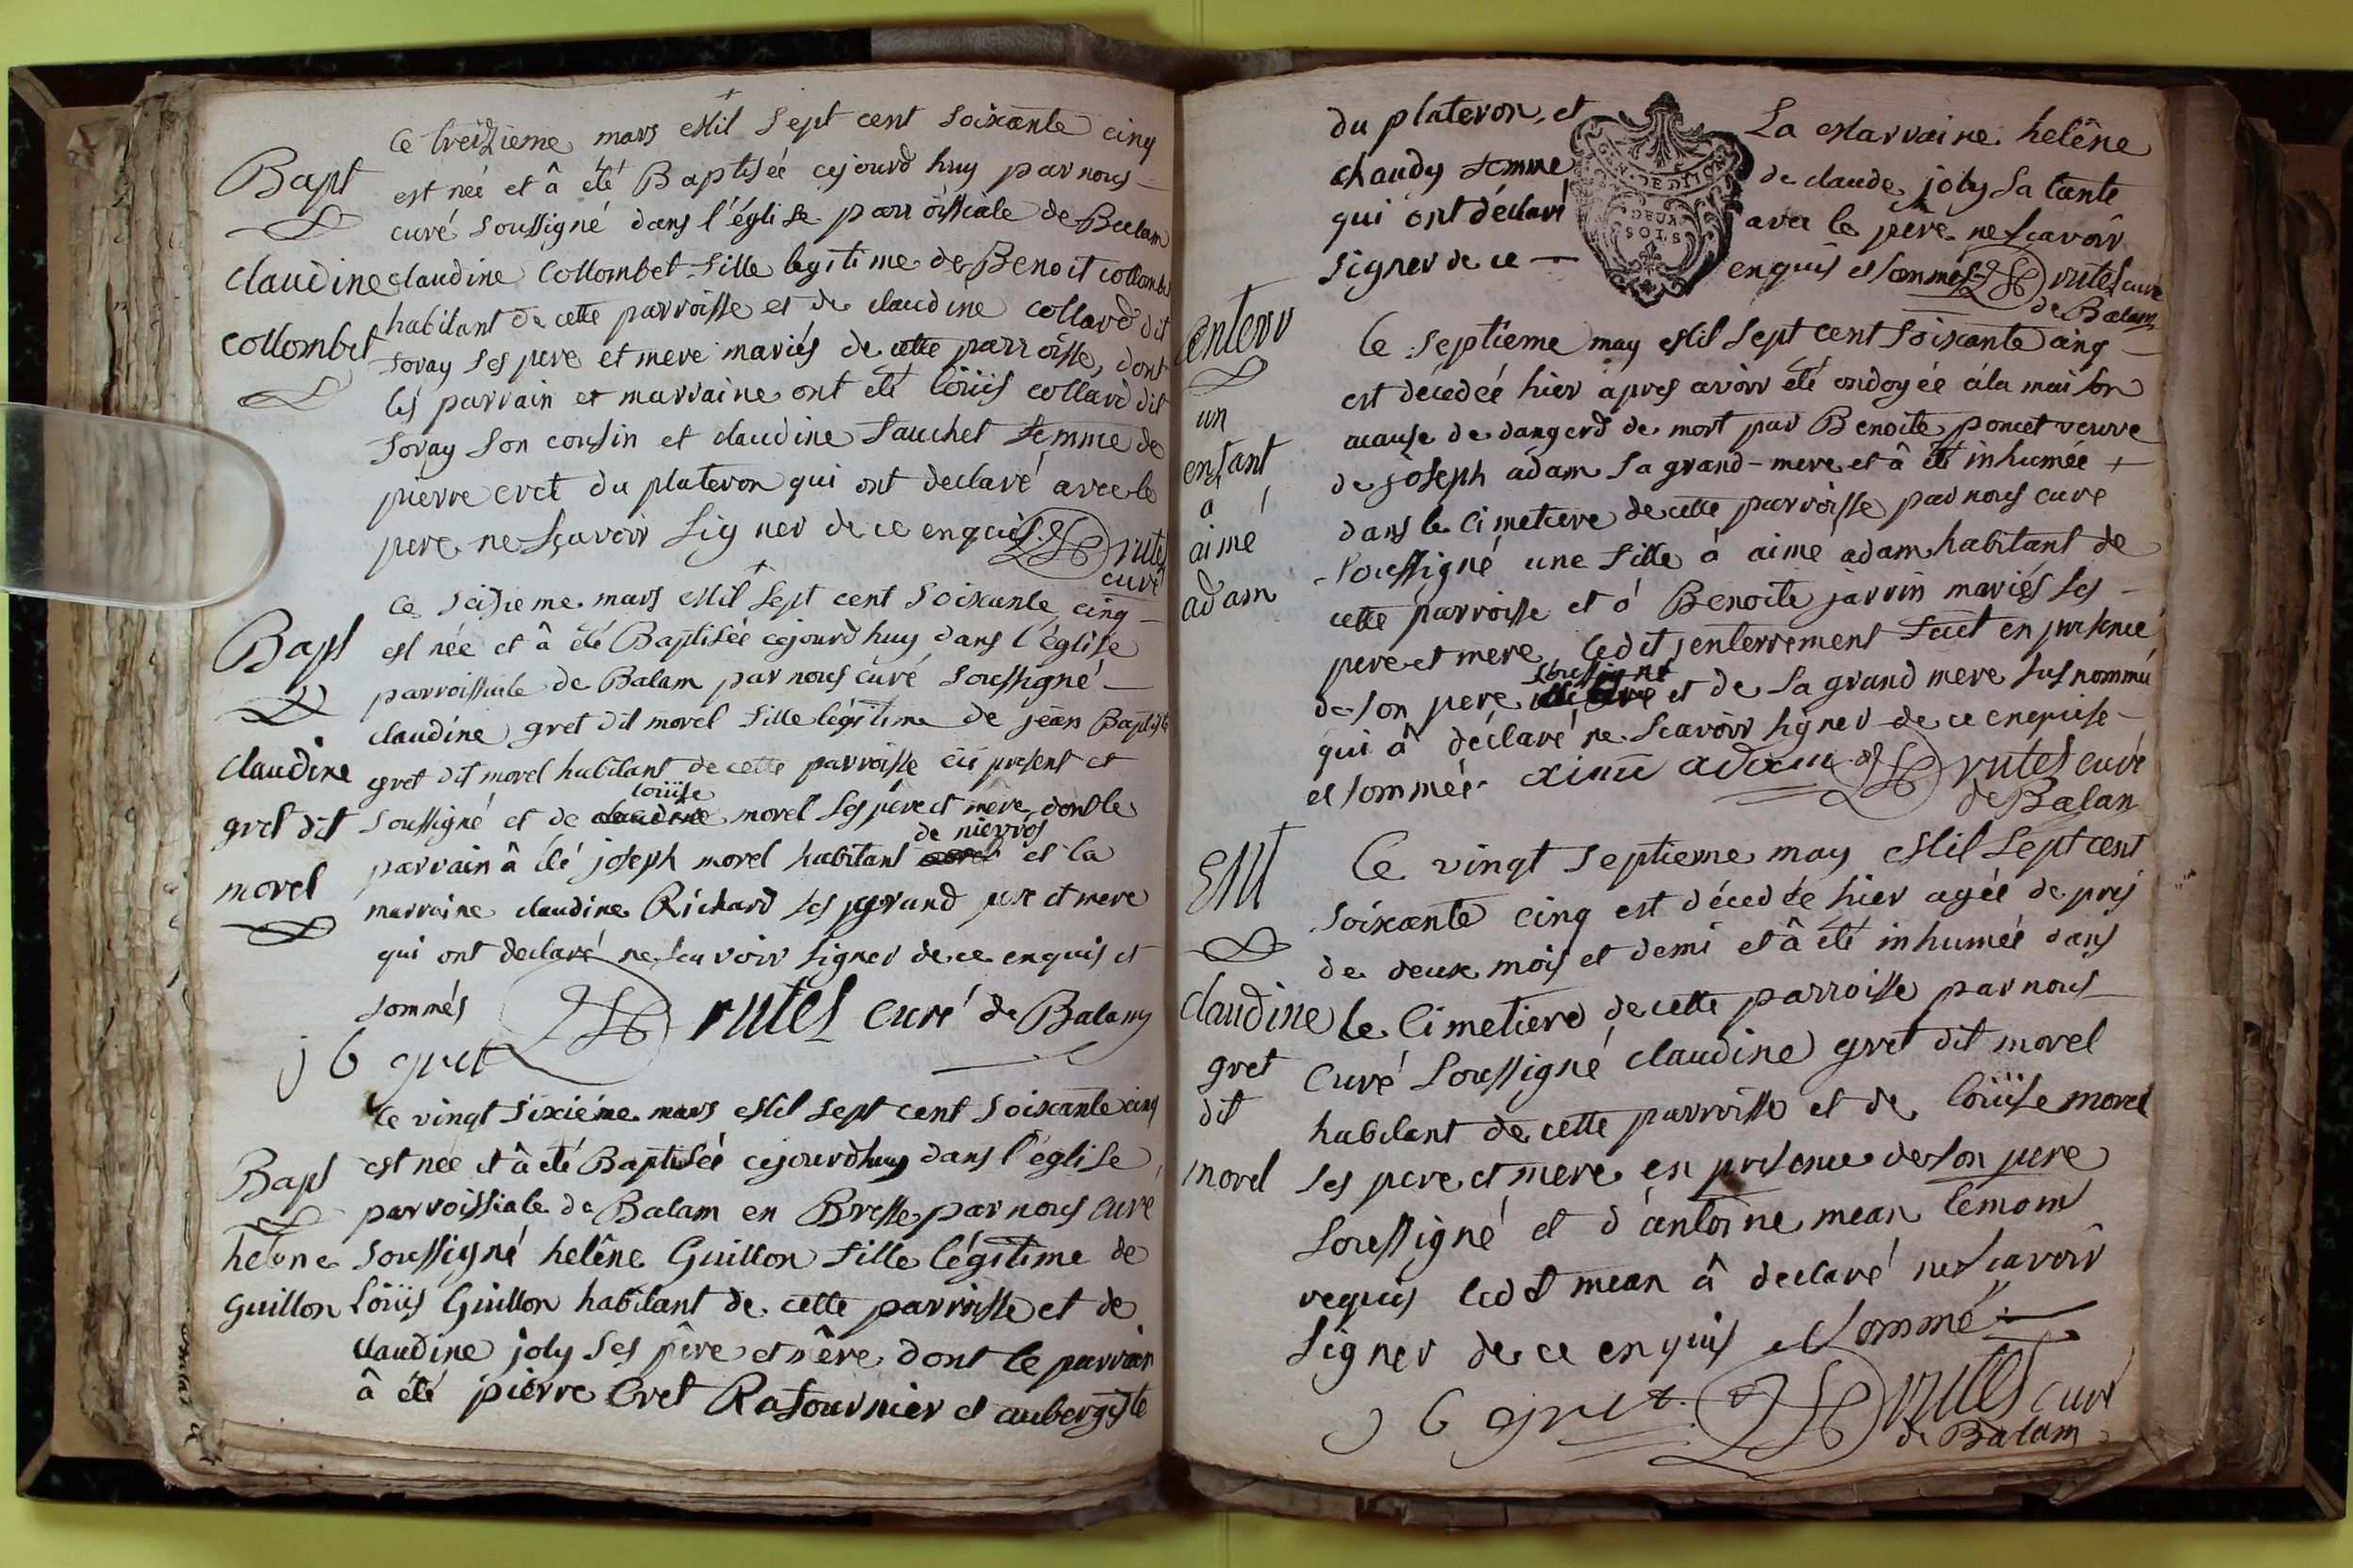 Bapt
claudine
collombet
Ce treizieme mars Mil sept cent soixante cinq
est née et â été Baptisée cejourd huy par nous
curé soussigné dans l'église parroissiale de Balam
claudine Collombet fille legitime de Benoit collombet
habitant de cette parroisse et de claudine collard dit
foray ses pere et mere mariés de cette parroisse, dont
les parrain et marraine ont été loüis collard dit
foray son cousin et claudine fauchet femme de
pierre cret du plateron qui ont declaré avec le
pere ne sçavoir signer de ce enquis rutes
curé
Bapt
claudine
gret dit
morel
Ce seizieme mars Mil sept cent soixante cinq
est née et â été Baptisée cejourd huy dans l'église
parroissiale de Balam par nous curé soussigné
claudine gret dit morel fille légitime de jean Baptiste
gret dit morel habitant de cette parroisse icy present et
loüise
soussigné et de claudine morel ses pere et mere dont le
de nievros
parrain â été joseph morel habitant et la
marraine claudine Richard ses grand pere et mere
qui ont declaré ne sçavoir signer de ce enquis et
sommés rutes curé de Balam
j b gret
Bapt
helene
Guillon
le vingt sixiéme mars Mil sept cent soixante cinq
est née et â été Baptisée cejourdhuy dans l'église
parroissiale de Balam en Bresse par nous curé
soussigné helêne Guillon fille légitime de
Loüis Guillon habitant de cette parroisse et de
claudine joly ses pêre et mêre dont le parrain
â été pierre Cret Rafournier et aubergiste
du plateron, et La Marraine helêne
chaudy femme de claude joly sa tante
qui ont déclaré avec le pere ne sçavoir
signer de ce enquis et sommés rutes curé
de Balam
GEN. DE DIJON
enterr
un
enfant
a
aimé
adam
Ce septieme may Mil sept cent soixante cinq
est décédée hier apres avoir été ondoyée a la maison
acause de dangerd de mort par Benoite poncet veuve
de joseph adam sa grand-mere et â été inhumée
dans le cimetiere de cette parroisse par nous curé
soussigné une fille à aimé adam habitant de
cette parroisse et à Benoite jarrin mariés ses
pere et mere, ledit enterrement fait en presence
soussigné
de son pere et de sa grand mere susnommée
qui â déclaré ne sçavoir signer de ce enquise
et sommée aimé adam rutes curé
de Balan
Ent
claudine
gret
dit
morel
Ce vingt septieme may Mil sept cent
soixante cinq est décédée hier agée de prés
de deux mois et demi et â été inhumée dans
le Cimetiere de cette parroisse par nous
Curé soussigné claudine gret dit morel
habitant de cette parroisse et de loüise morel
ses pere et mere en presence de son pere
soussigné et d'antoine mean temoin
requis ledit mean â declaré ne sçavoir
signer de ce enquis et sommé
j b gret rutes curé
de Balam